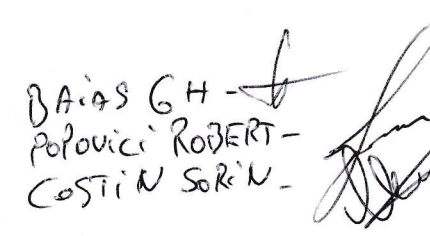 BAiAS GH -
POPOViCi ROBERT -
COSTiN SORiN -